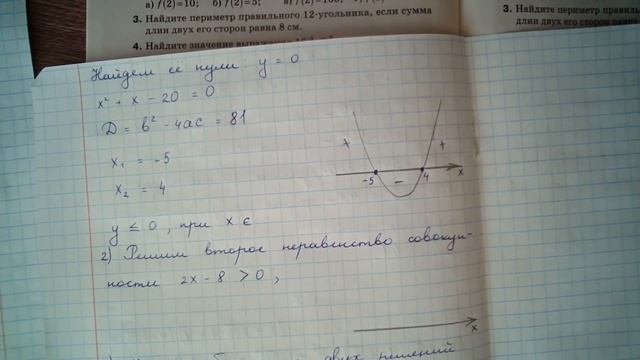 а) f(2)=10; б) f(2)=5;
3. Найдите периметр правильного 12-угольника, если сумма
длин двух его сторон равна 8 см.
4. Найдите значение выражения
3. Найдите периметр
длин двух его сторон
4.
Найдем ее нули y = 0
x² + x - 20 = 0
D = b² - 4ac = 81
x₁ = -5
x₂ = 4
+ + -5 - 4 x
y ≤ 0, при x ∈
2) Решим второе неравенство совокуп-
ности 2x - 8 > 0,
x
двух решений